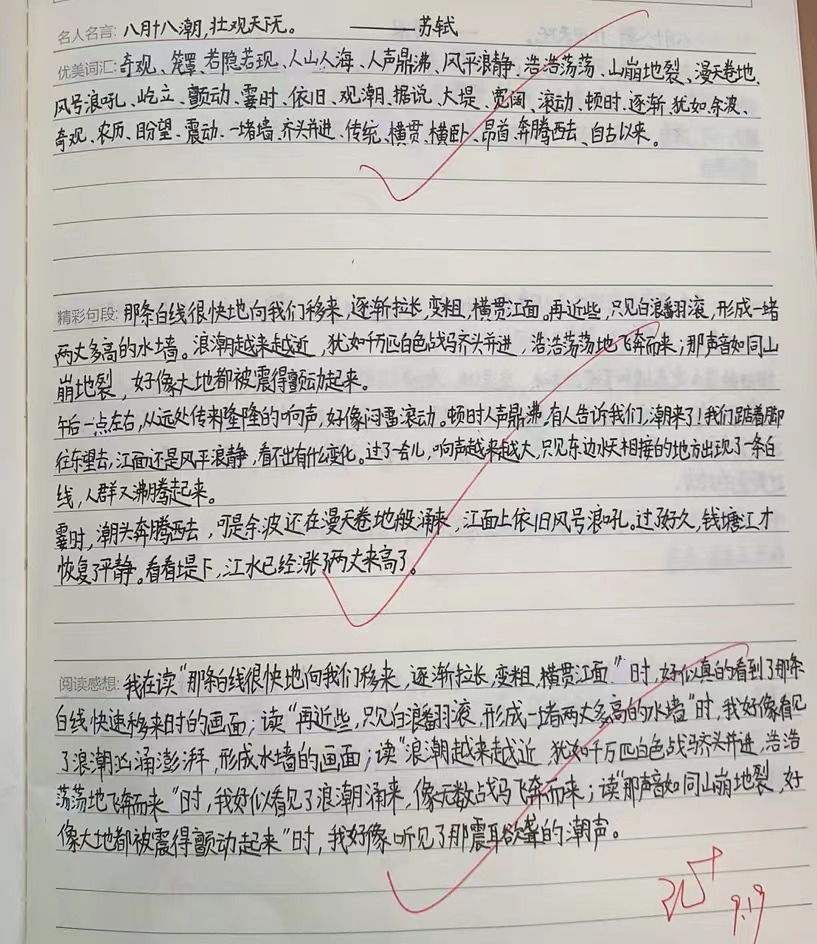 名人名言：八月十八潮，壮观天下无。 ——苏轼
优美词汇：奇观、笼罩、若隐若现、人山人海、人声鼎沸、风平浪静、浩浩荡荡、山崩地裂、漫天卷地、
风号浪吼、屹立、颤动、霎时、依旧、观潮、据说、大堤、宽阔、滚动、顿时、逐渐、犹如、余波、
奇观、农历、盼望、震动、一堵墙、齐头并进、传统、横贯、横卧、昂首、奔腾西去、自古以来。
精彩句段：那条白线很快地向我们移来，逐渐拉长，变粗，横贯江面。再近些，只见白浪翻滚，形成一堵
两丈多高的水墙。浪潮越来越近，犹如千万匹白色战马齐头并进，浩浩荡荡地飞奔而来；那声音如同山
崩地裂，好像大地都被震得颤动起来。
午后一点左右，从远处传来隆隆的响声，好像闷雷滚动。顿时人声鼎沸，有人告诉我们，潮来了！我们踮着脚
往东望去，江面还是风平浪静，看不出有什么变化。过了一会儿，响声越来越大，只见东边水天相接的地方出现了一条白
线，人群又沸腾起来。
霎时，潮头奔腾西去，可是余波还在漫天卷地般涌来，江面上依旧风号浪吼。过了好久，钱塘江才
恢复了平静。看看堤下，江水已经涨了两丈来高了。
阅读感想：我在读“那条白线很快地向我们移来，逐渐拉长，变粗，横贯江面”时，好似真的看到了那条
白线快速移来时的画面；读“再近些，只见白浪翻滚，形成一堵两丈多高的水墙”时，我好像看见
了浪潮汹涌澎湃，形成水墙的画面；读“浪潮越来越近，犹如千万匹白色战马齐头并进，浩浩
荡荡地飞奔而来”时，我好似看见了浪潮涌来，像无数战马飞奔而来；读“那声音如同山崩地裂，好
像大地都被震得颤动起来”时，我好像听见了那震耳欲聋的潮声。
9.19